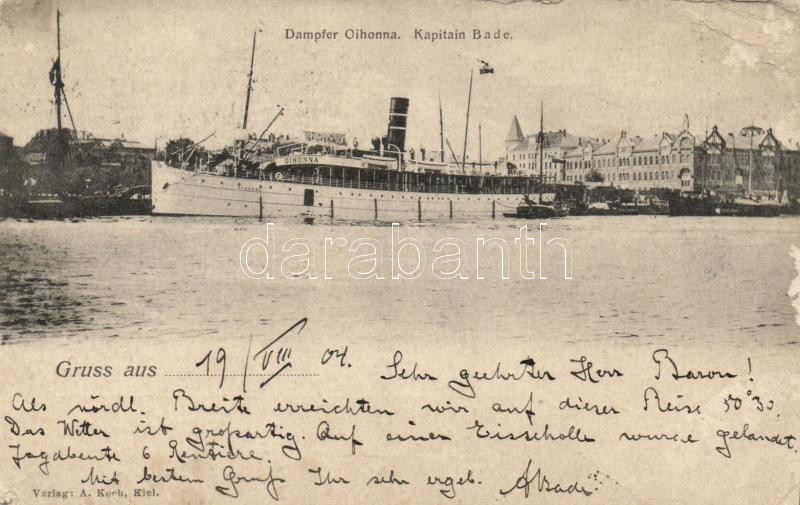 Dampfer Oihonna. Kapitain Bade.
OIHONNA
darabanth
Gruss aus 19/VIII 04. Sehr geehrter Herr Baron!
Als nördl. Breite erreichten wir auf dieser Reise 30.
Das Wetter ist großartig. Auf einer Eisscholle wurde gelandet.
Jagdbeute 6 Rentiere.
Mit bestem Gruß Ihr sehr ergeb. ABade
Verlag: A. Koch, Kiel.